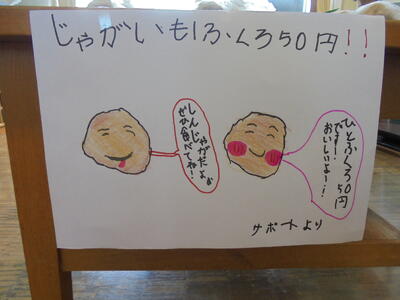 じゃがいも1ふくろ50円!!
しんじゃがだよ♪
ぜひ食べてね!
ひとふくろ50円
です!
おいしいよー!
サポートより